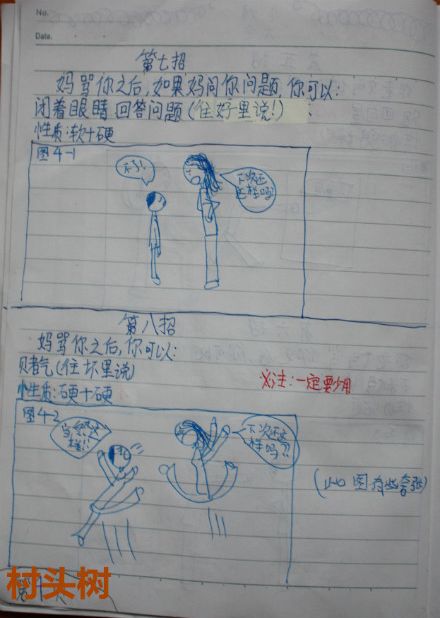 No.
Date.
第七招
妈骂你之后,如果妈问你问题,你可以:
闭着眼睛回答问题(住好里说!)
性质:软+硬
图4-1
不了!
下次还
这样吗?
第八招
妈骂你之后,你可以:
赌气(住坏里说)
性质:硬+硬
必注:一定要少用
图4-2
下次还这
样吗?!
村头树